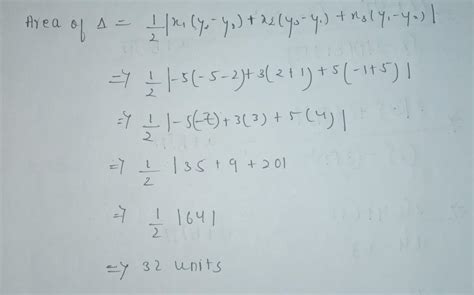 Area of Δ = 1/2 |x₁(y₂-y₃) + x₂(y₃-y₁) + x₃(y₁-y₂)|
=> 1/2 |-5(-5-2)+3(2+1)+5(-1+5)|
=> 1/2 |-5(-7)+3(3)+5(4)|
=> 1/2 |35+9+20|
=> 1/2 |64|
=> 32 units